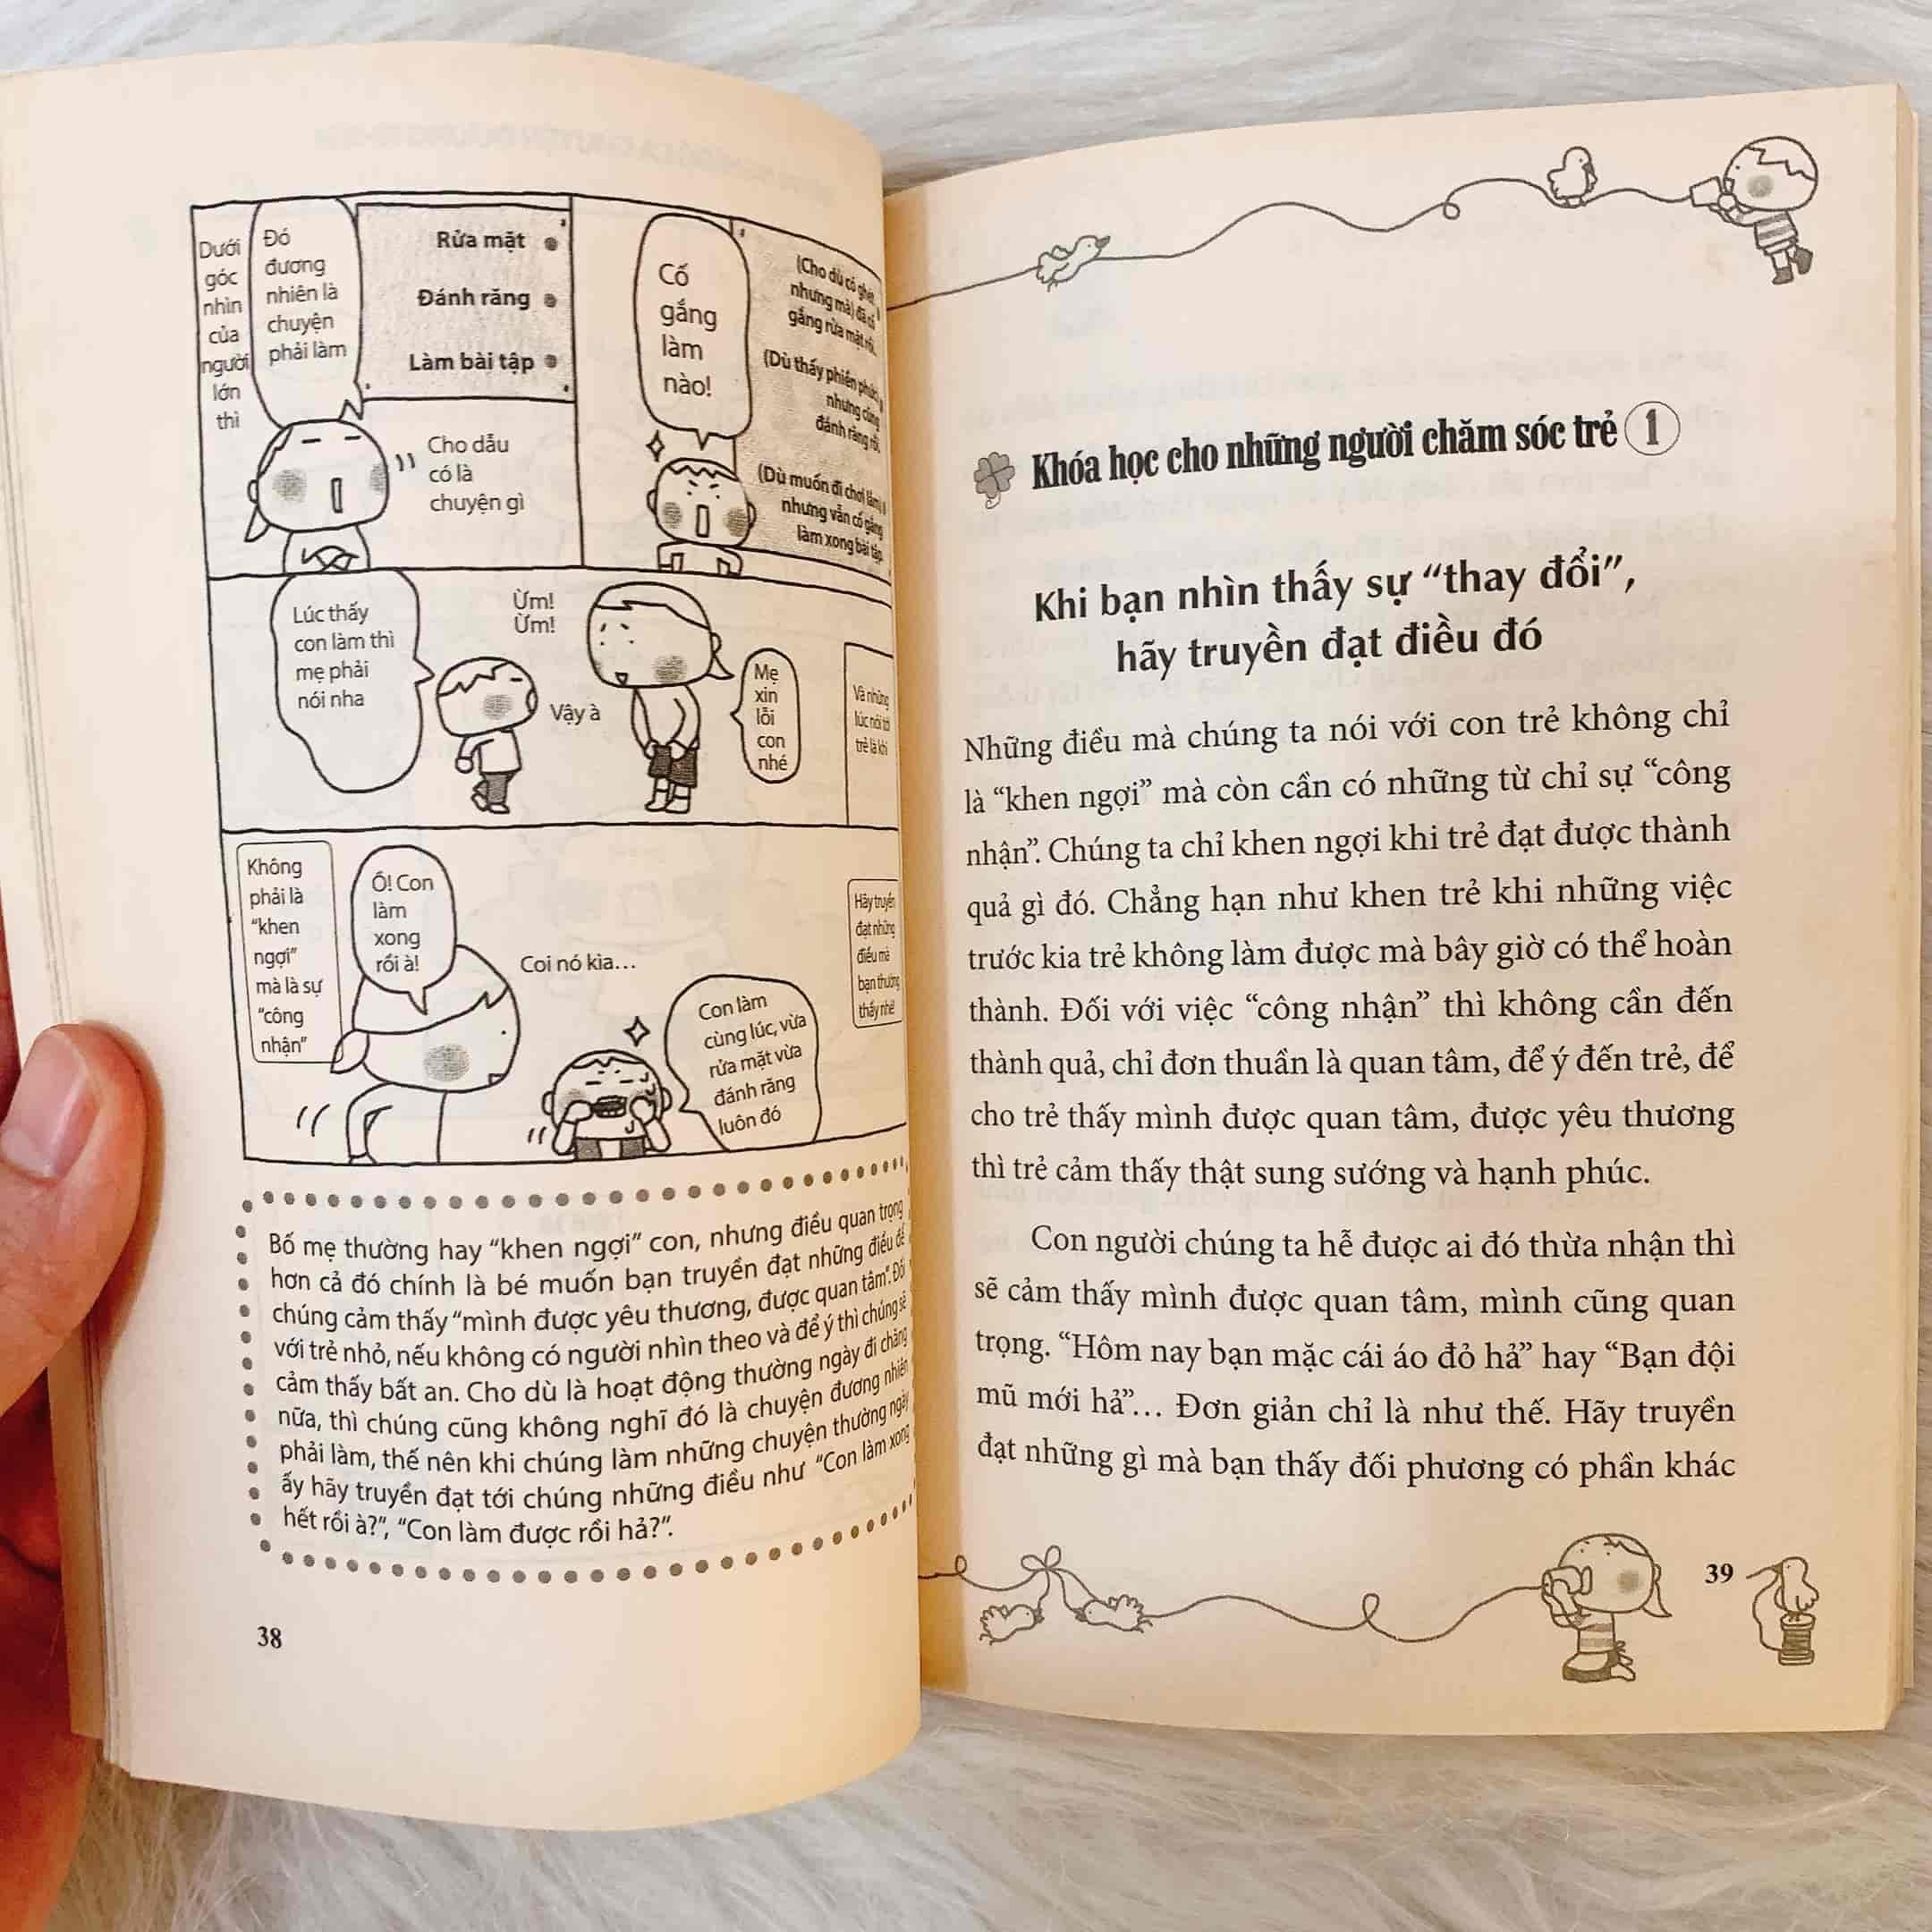 Dưới
góc
nhìn
của
người
lớn
thì
Đó
đương
nhiên là
chuyện
phải làm
Rửa mặt
Đánh răng
Làm bài tập
Cho dẫu
có là
chuyện gì
Cố
gắng
làm
nào!
(Cho dù có ghét,
nhưng mà) đã cố
gắng rửa mặt rồi.
(Dù thấy phiền phức)
nhưng cũng
đánh răng rồi.
(Dù muốn đi chơi lắm)
nhưng vẫn cố gắng
làm xong bài tập.
Lúc thấy
con làm thì
mẹ phải
nói nha
Ừm!
Ừm!
Vậy à
Mẹ
xin
lỗi
con
nhé
Và những
lúc nói với
trẻ là khi
Không
phải là
“khen
ngợi”
mà là sự
“công
nhận”
Ồ! Con
làm
xong
rồi à!
Coi nó kìa...
Con làm
cùng lúc, vừa
rửa mặt vừa
đánh răng
luôn đó
Hãy truyền
đạt những
điều mà
bạn thường
thấy nhé!
Bố mẹ thường hay “khen ngợi” con, nhưng điều quan trọng
hơn cả đó chính là bé muốn bạn truyền đạt những điều để
chúng cảm thấy “mình được yêu thương, được quan tâm”. Đối
với trẻ nhỏ, nếu không có người nhìn theo và để ý thì chúng sẽ
cảm thấy bất an. Cho dù là hoạt động thường ngày đi chăng
nữa, thì chúng cũng không nghĩ đó là chuyện đương nhiên
phải làm, thế nên khi chúng làm những chuyện thường ngày
ấy hãy truyền đạt tới chúng những điều như “Con làm xong
hết rồi à?”, “Con làm được rồi hả?”.
38
Khóa học cho những người chăm sóc trẻ 1
Khi bạn nhìn thấy sự “thay đổi”,
hãy truyền đạt điều đó
Những điều mà chúng ta nói với con trẻ không chỉ
là “khen ngợi” mà còn cần có những từ chỉ sự “công
nhận”. Chúng ta chỉ khen ngợi khi trẻ đạt được thành
quả gì đó. Chẳng hạn như khen trẻ khi những việc
trước kia trẻ không làm được mà bây giờ có thể hoàn
thành. Đối với việc “công nhận” thì không cần đến
thành quả, chỉ đơn thuần là quan tâm, để ý đến trẻ, để
cho trẻ thấy mình được quan tâm, được yêu thương
thì trẻ cảm thấy thật sung sướng và hạnh phúc.
Con người chúng ta hễ được ai đó thừa nhận thì
sẽ cảm thấy mình được quan tâm, mình cũng quan
trọng. “Hôm nay bạn mặc cái áo đỏ hả” hay “Bạn đội
mũ mới hả”... Đơn giản chỉ là như thế. Hãy truyền
đạt những gì mà bạn thấy đối phương có phần khác
39